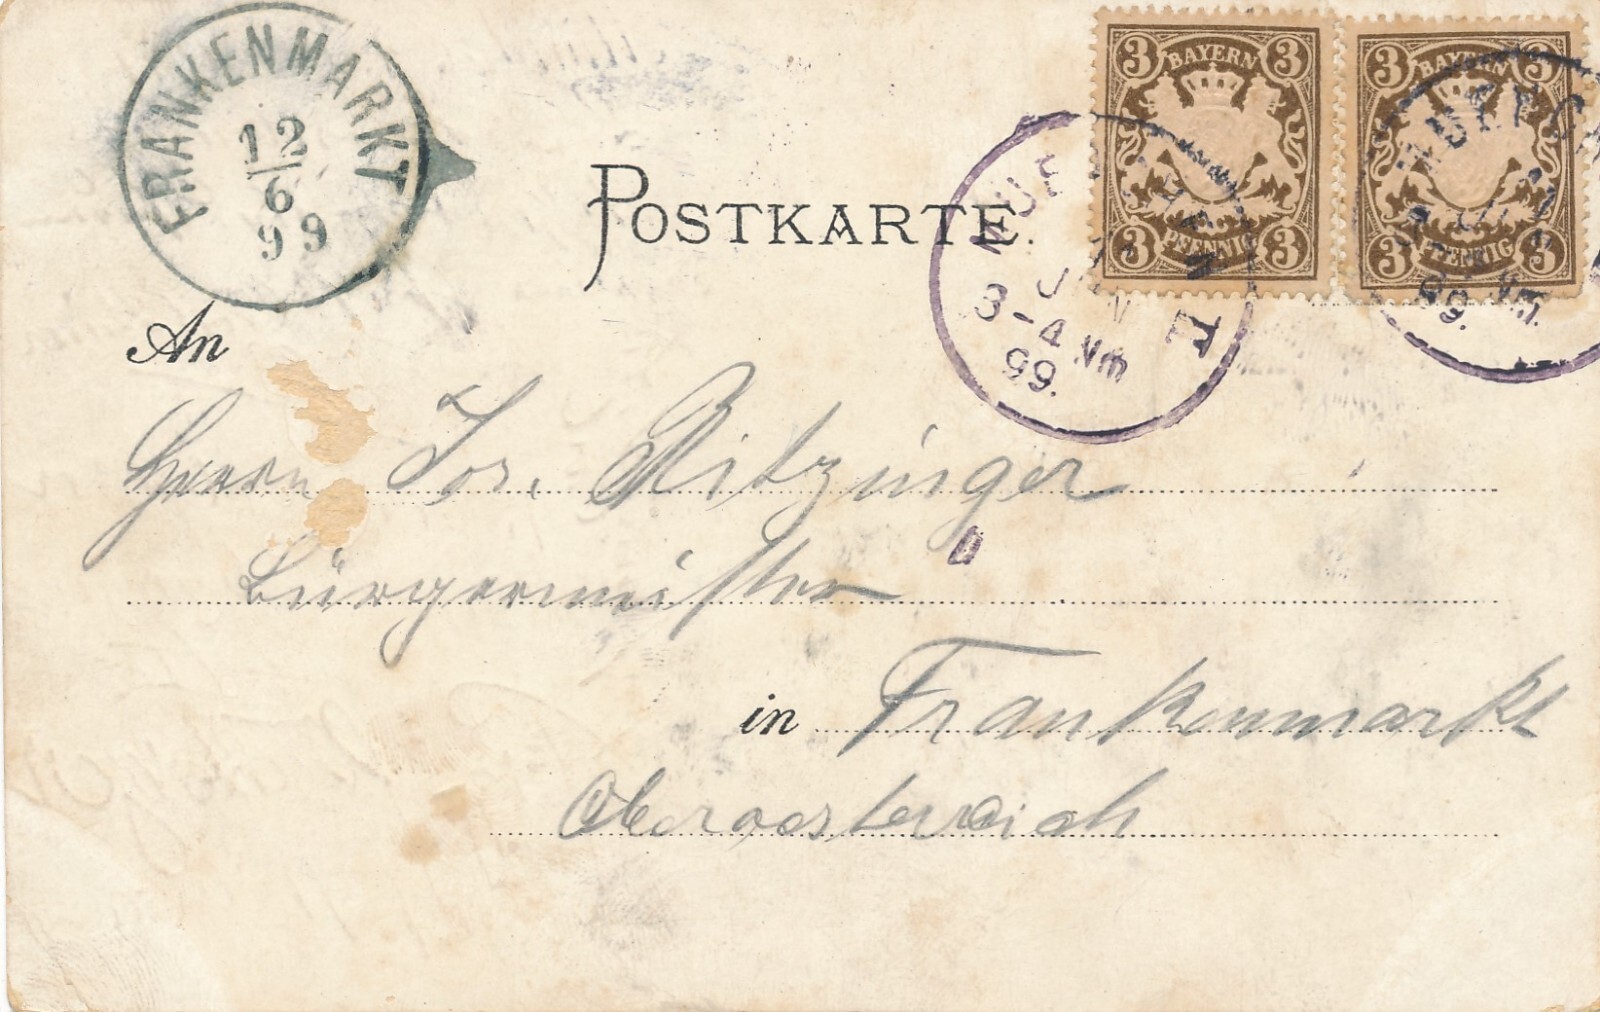 FRANKENMARKT
12
6
99
3 BAYERN 3
3 PFENNIG 3
3 BAYERN 3
3 PFENNIG 3
POSTKARTE.
3-4 Nm
99.
99. Nm.
An
Herrn Jos. Ritzinger
Bürgermeister
in Frankenmarkt
Oberoesterreich